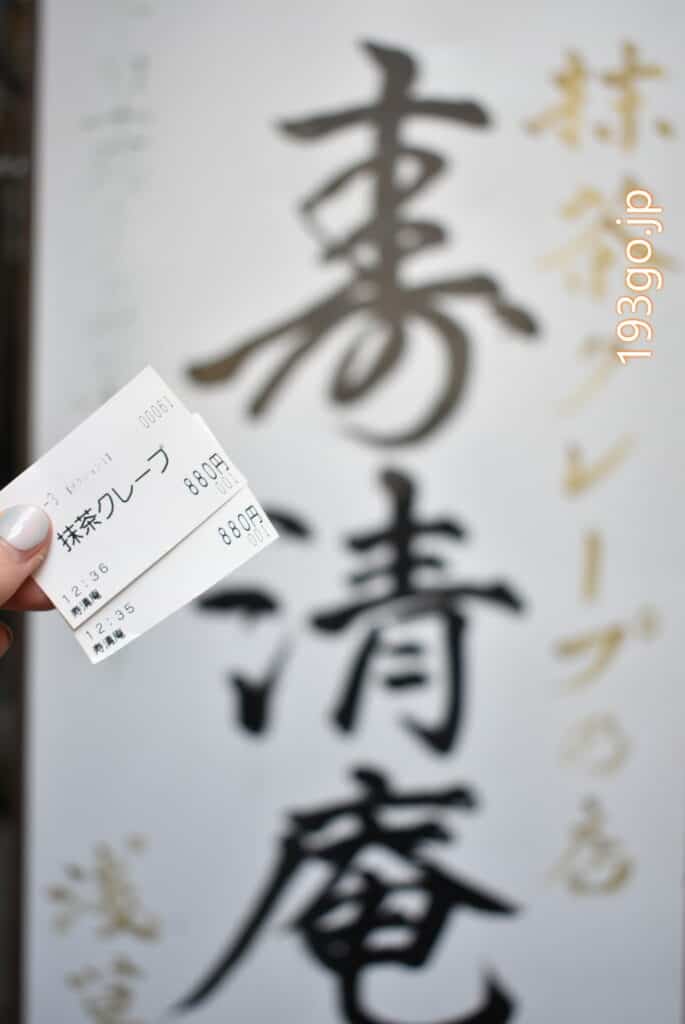 抹茶クレープの店
寿清庵
浅草
193go.jp
00061
抹茶クレープ
880円
001
12:36
寿清庵
880円
001
12:35
寿清庵